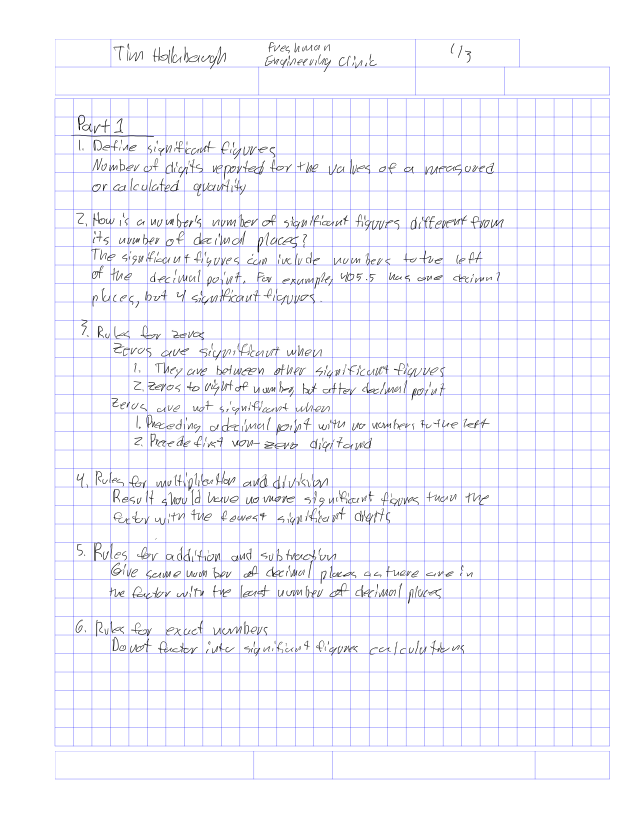 Tim Hollabaugh
Freshman
Engineering Clinic
1/3
Part 1
1. Define significant figures
Number of digits reported for the values of a measured
or calculated quantity
2. How is a number's number of significant figures different from
its number of decimal places?
The significant figures can include numbers to the left
of the decimal point. For example, 405.5 has one decimal
places, but 4 significant figures.
3. Rules for zeros
Zeros are significant when
1. They are between other significant figures
2. Zeros to right of number, but after decimal point
Zeros are not significant when
1. Preceding a decimal point with no numbers to the left
2. Precede first non-zero digit and
4. Rules for multiplication and division
Result should have no more significant figures than the
factor with the fewest significant digits
5. Rules for addition and subtraction
Give same number of decimal places as there are in
the factor with the least number of decimal places
6. Rules for exact numbers
Do not factor into significant figures calculations